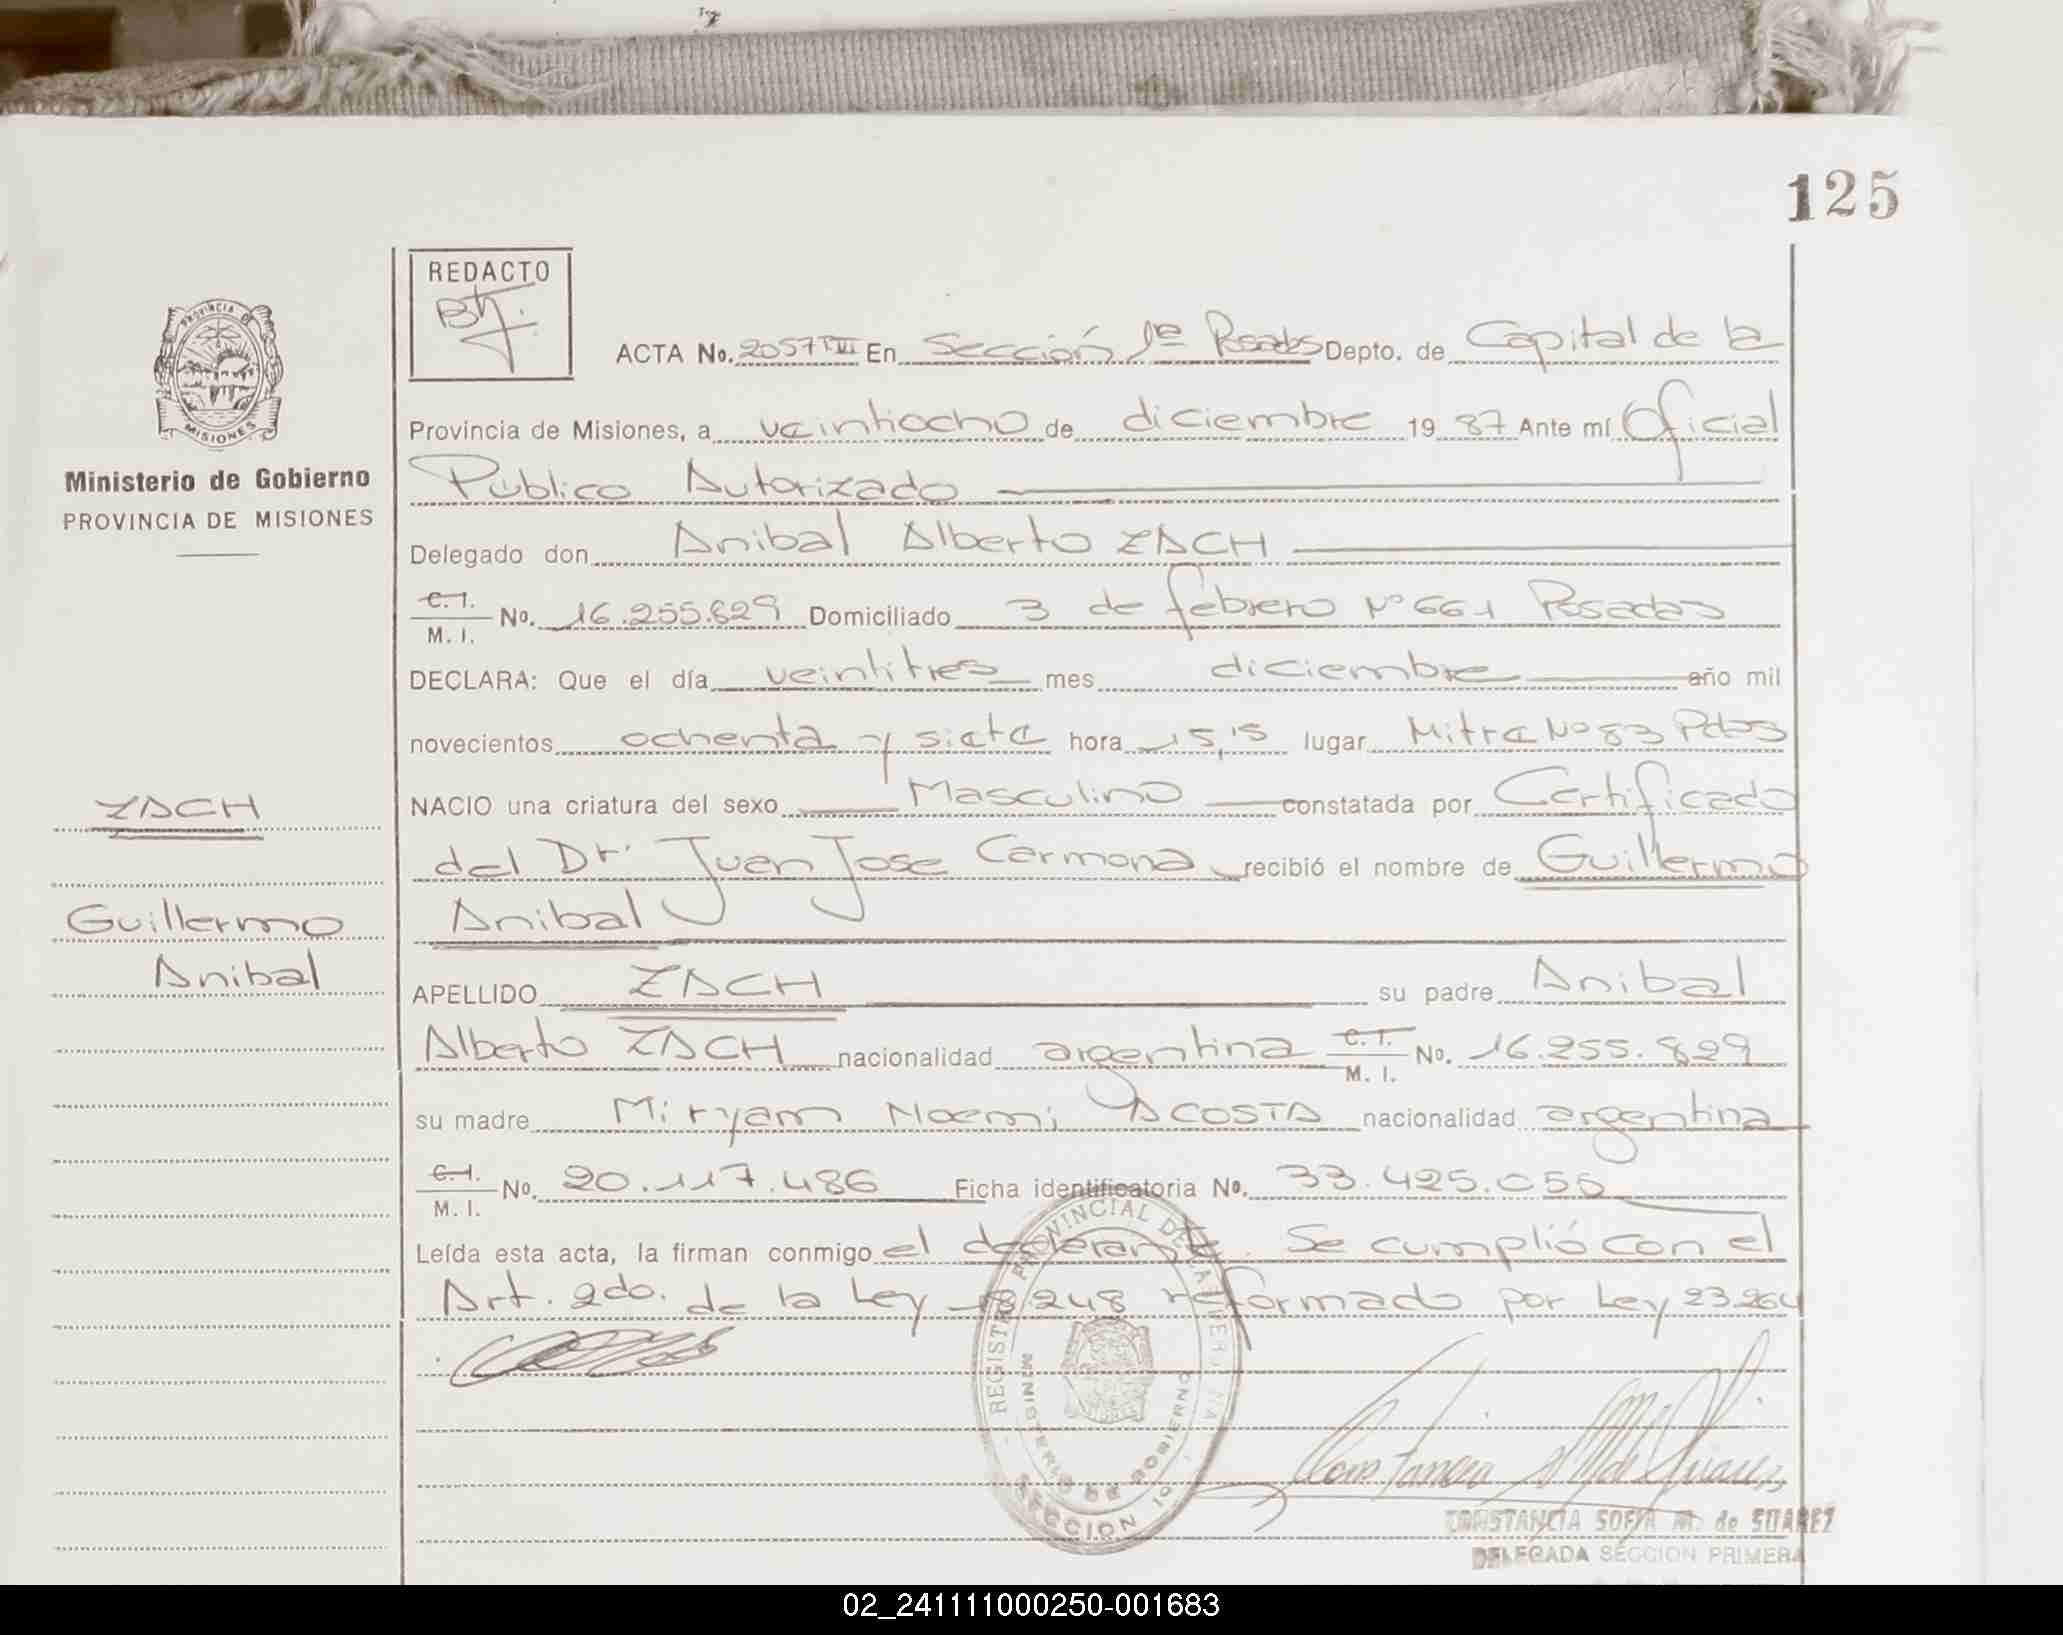 125
REDACTO
PROVINCIA DE
MISIONES
Ministerio de Gobierno
PROVINCIA DE MISIONES
ACTA No. 2057 TVI En Sección 1ra Posadas Depto. de Capital de la
Provincia de Misiones, a veintiocho de diciembre 19 87 Ante mí Oficial
Público Autorizado
Delegado don Anibal Alberto ZACH
C.I. M. I. No. 16.255.829 Domiciliado 3 de febrero Nº 661 Posadas
DECLARA: Que el día veintitres mes diciembre año mil
novecientos ochenta y siete hora 15,15 lugar Mitre Nº 83 Pdas
ZACH
NACIO una criatura del sexo Masculino constatada por Certificado
del Dr. Juan Jose Carmona recibió el nombre de Guillermo
Guillermo
Anibal
Anibal
APELLIDO ZACH su padre Anibal
Alberto ZACH nacionalidad argentina C.I. M. I. No. 16.255.829
su madre Miryam Noemi ACOSTA nacionalidad argentina
C.I. M. I. No. 20.117.486 Ficha identificatoria No. 33.425.055
Leída esta acta, la firman conmigo el declarante. Se cumplió con el
Art. 2do. de la Ley 18.248 reformado por Ley 23.264
REGISTRO PROVINCIAL DE LAS PERSONAS
MINISTERIO DE GOBIERNO
SECCION 1o.
CONSTANCIA SOFIA M. de SUAREZ
DELEGADA SECCION PRIMERA
02_241111000250-001683